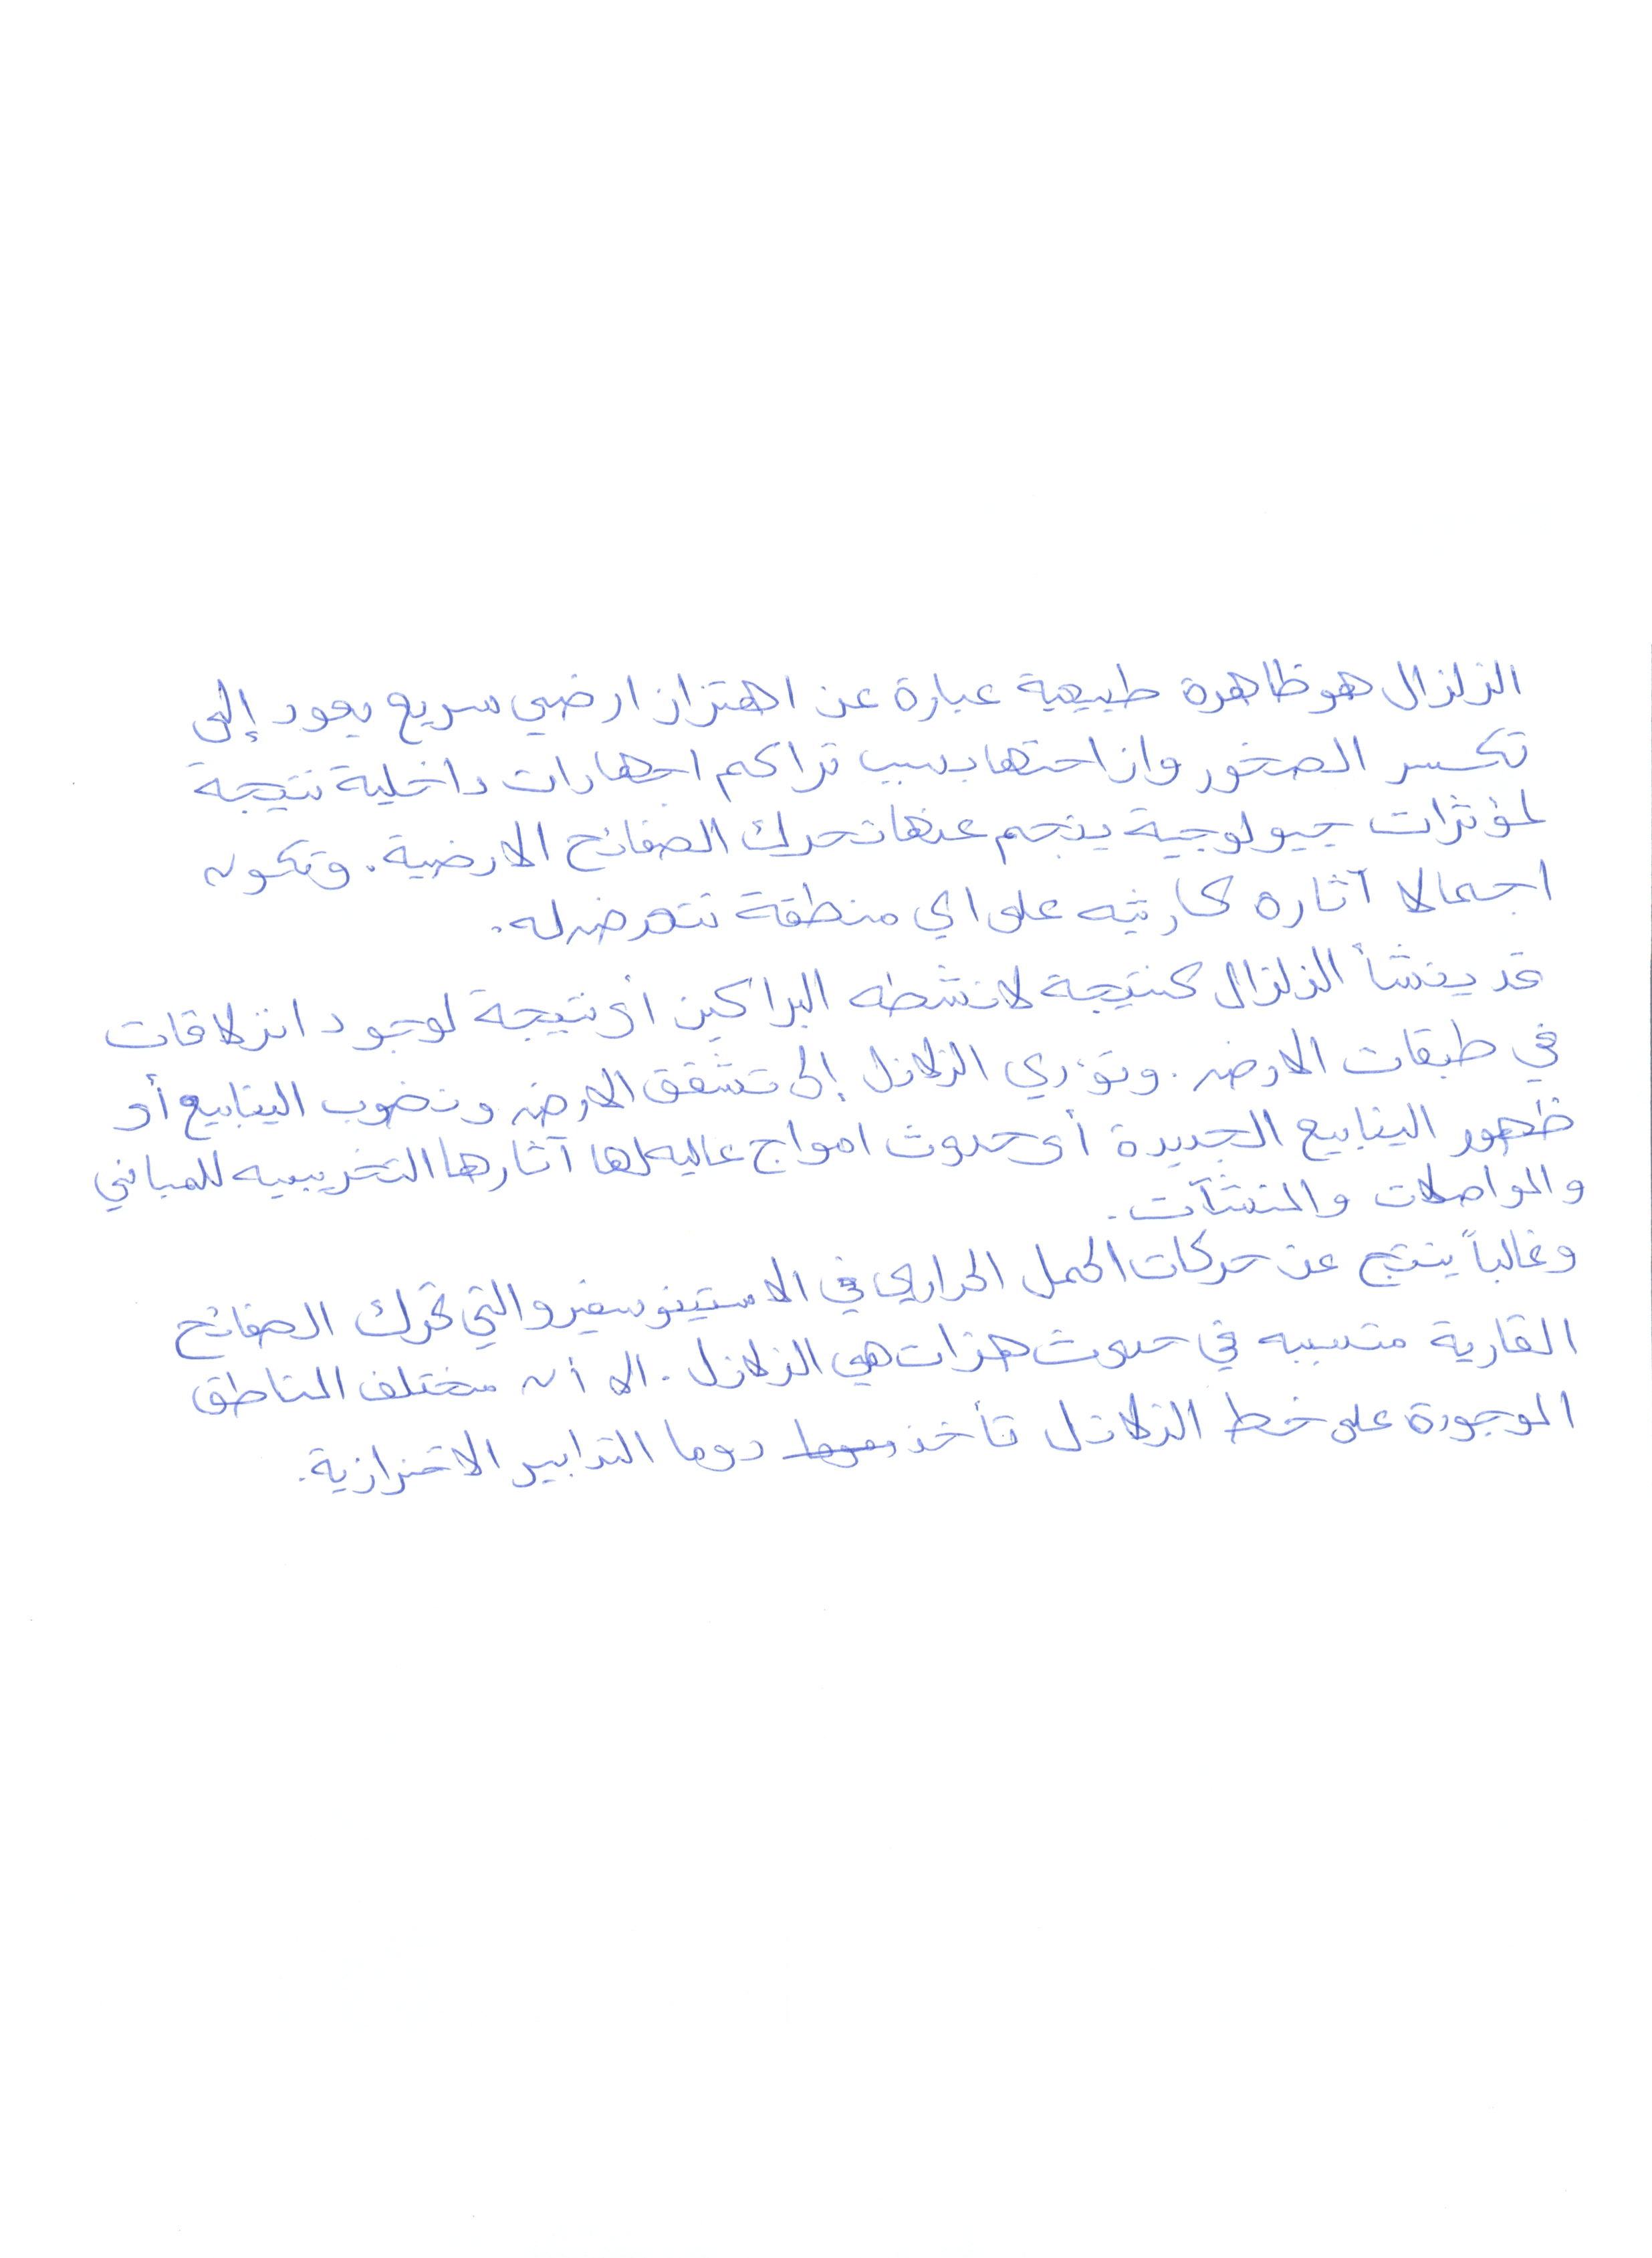 الزلزال هو ظاهرة طبيعية عبارة عن اهتزاز ارضي سريع يعود إلى
تكسر الصخور وازاحتها بسبب تراكم اجهادات داخلية نتيجة
لمؤثرات جيولوجية ينجم عنها تحريك الصفائح الارضية. وتكون
اجمالا آثاره كارثيه على اي منطقة تتعرض له.
قد ينشأ الزلزال كنتيجة لانشطه البراكين او نتيجة لوجود انزلاقات
في طبقات الارض. وتؤدي الزلازل إلى تشقق الارض ونضوب الينابيع أو
ظهور الينابيع الجديدة أو حدوث امواج عاليه لها آثارها التخريبيه للمباني
والمواصلات والمنشآت.
وغالباً ينتج عن حركات الحمل الحراري في الاستينوسفير والتي تحرك الصفائح
القارية متسببه في حدوث هزات هي الزلازل. الا أن مختلف المناطق
الموجودة على خط الزلازل تأخذ دوما التدابير الاحترازية.